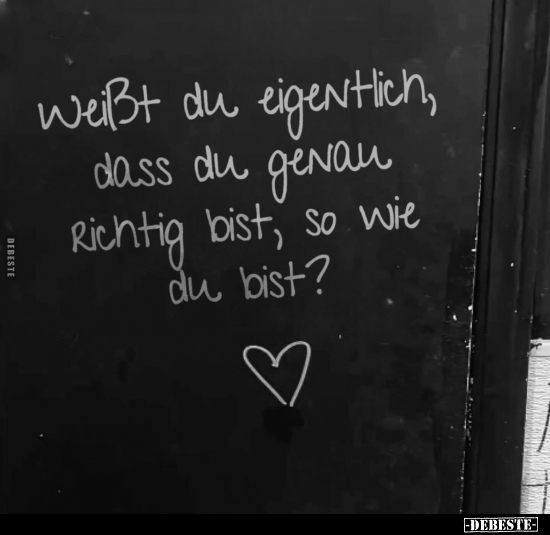 weißt du eigentlich,
dass du genau
richtig bist, so wie
du bist?
DEBESTE
-DEBESTE-